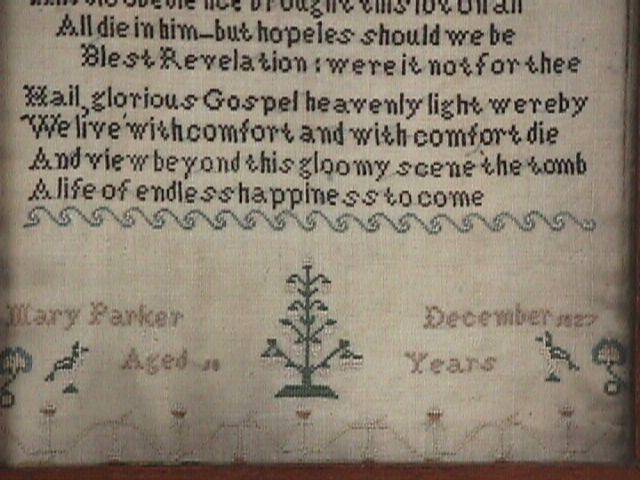 disobedience brought this lot on all
All die in him—but hopeles should we be
Blest Revelation : were it not for thee
Hail, glorious Gospel heavenly light wereby
We live with comfort and with comfort die
And view beyond this gloomy scene the tomb
A life of endless happiness to come
Mary Parker December 1827
Aged Years